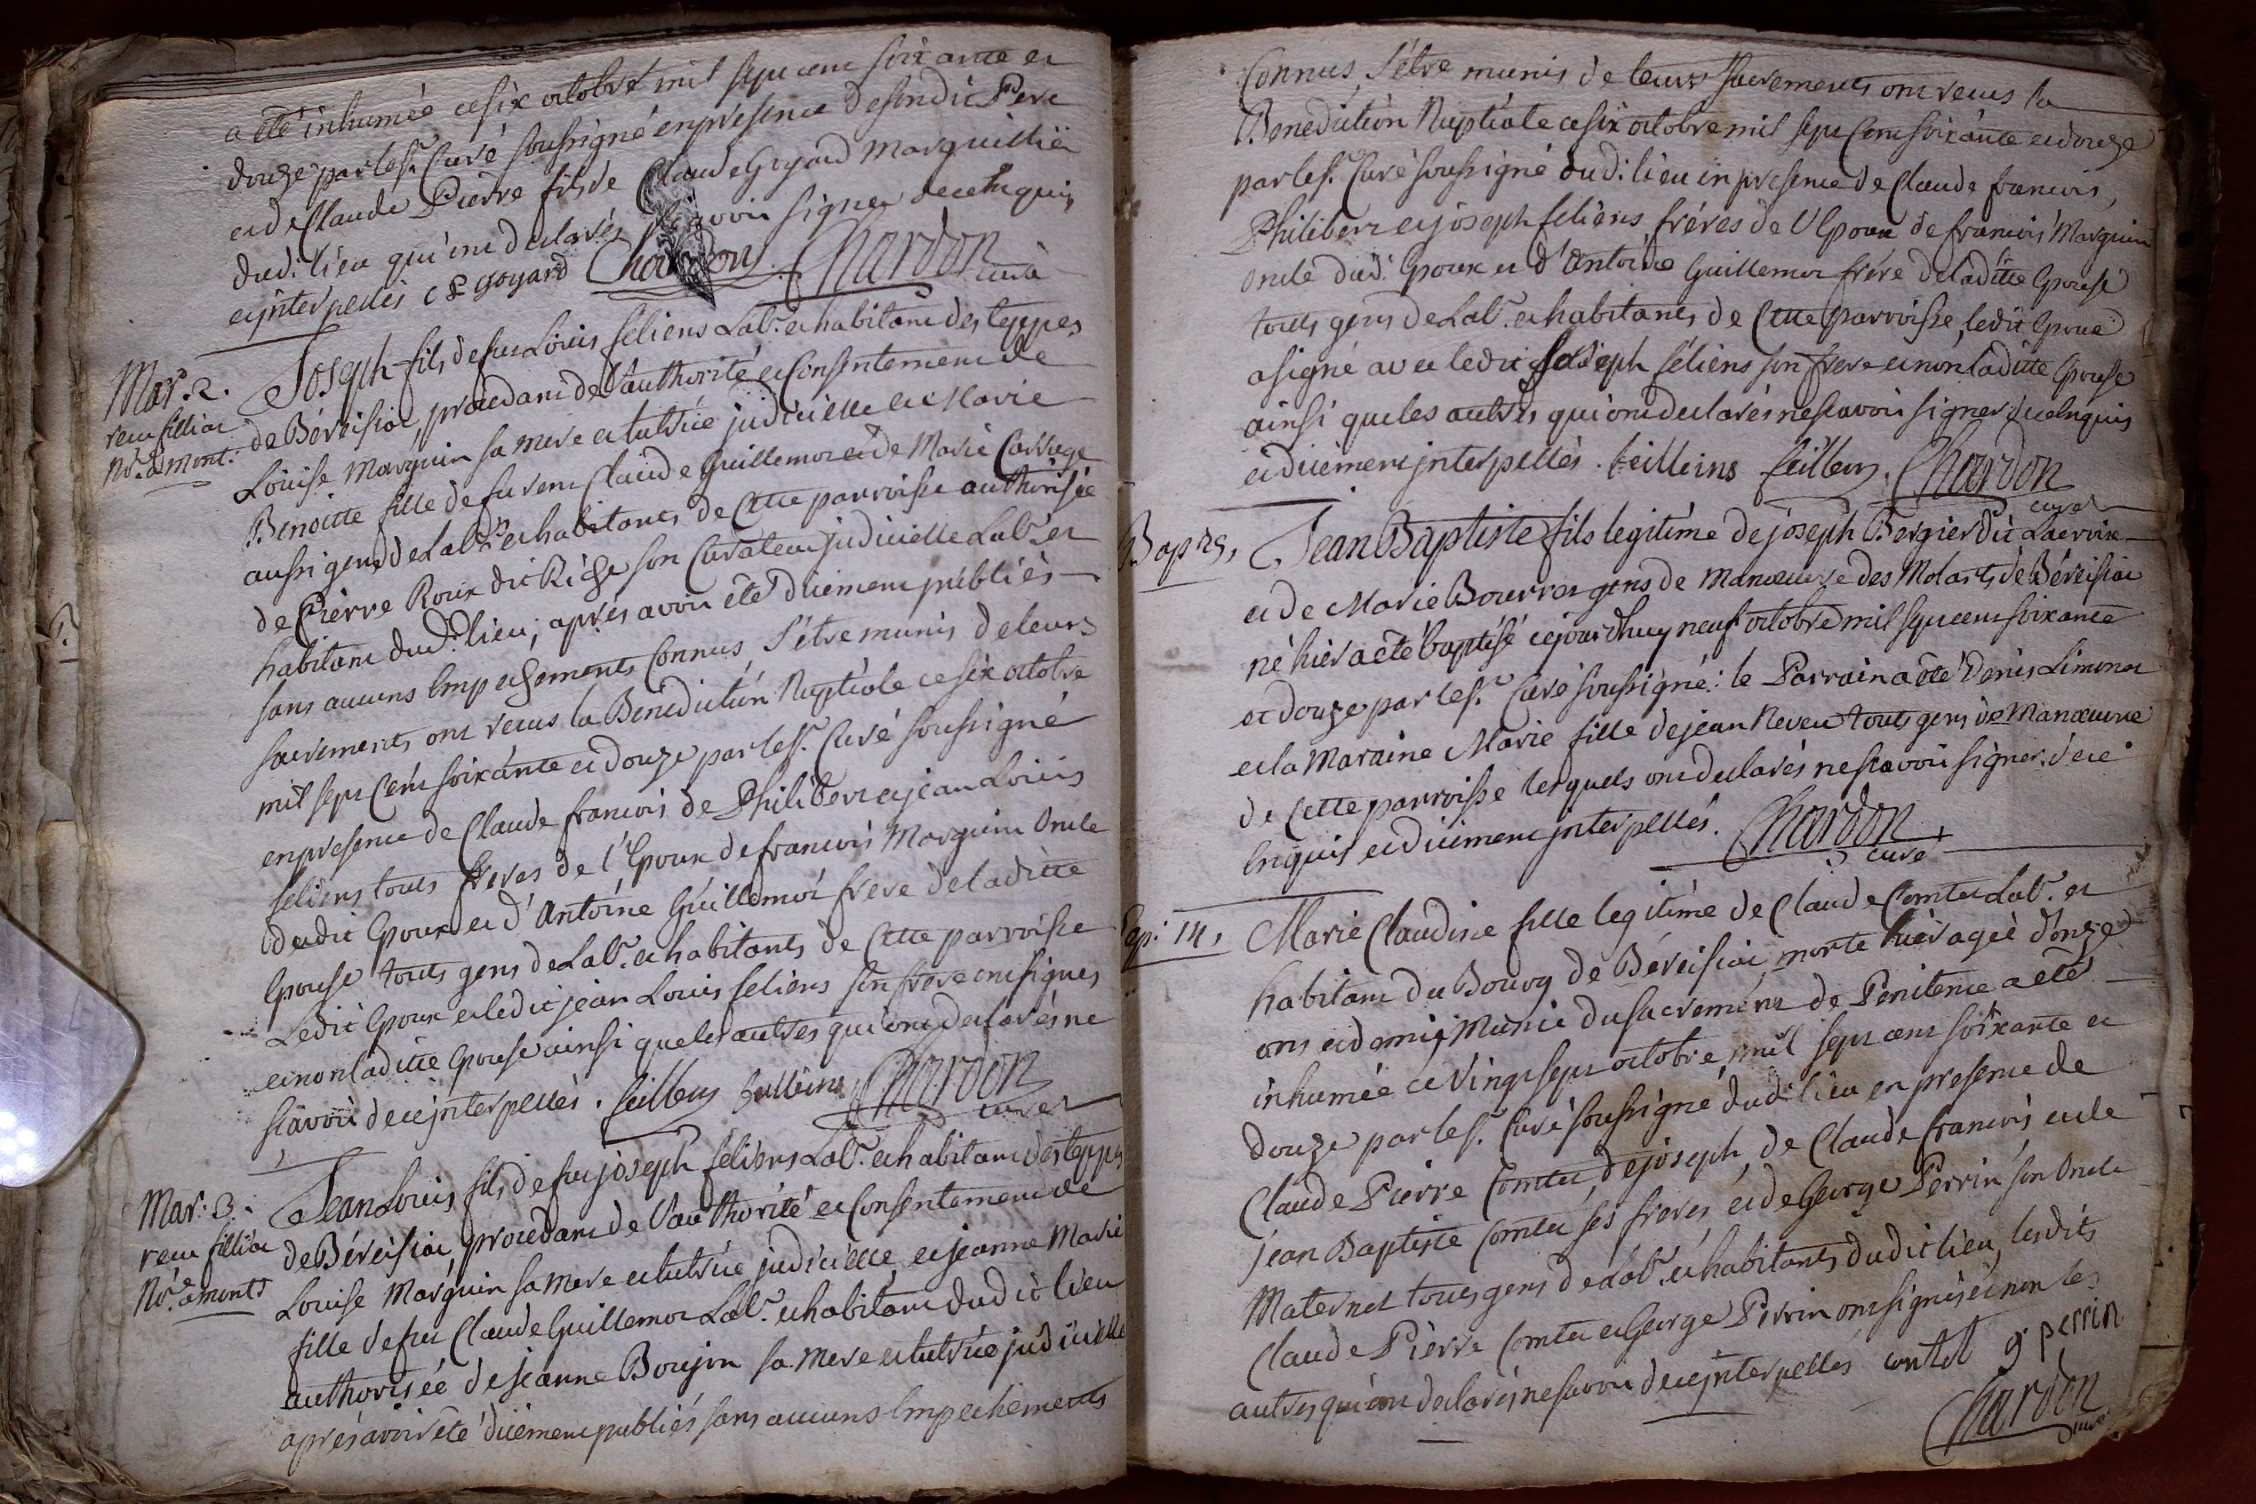 a été inhumée ce six octobre mil sept cent soixante et
douze par le Sr. Curé soussigné en presence de son dit Pere
et de Claude Pierre fils de Claude Goyard Marguillier
dud. lieu qui ont declarés savoir signer de ce enquis
et interpellés C P Goyard Chardon Chardon
curé
Mar. 2.
Joseph fils de fu Louis feliens Lab.r et habitant des teppes
de Béreisiat, procedant de l'authorité et Consentement de
Louise Marguin sa mere et tutrice judicielle et Marie
Benoitte fille de fu Claude Guillemot et de Marie Carrage
aussi gens de Lab.r et habitants de Cette parroisse authorisée
de Pierre Roux dit Riche son Curateur judicielle Lab.r et
habitant dud. lieu, aprés avoir été düement publiés
sans aucuns Empechements Connus s'étre munis de leurs
sacrements ont recus la Benediction Nuptiale ce six octobre
mil sept Cent soixante et douze par le Sr. Curé soussigné
en presence de Claude francois de Philibert et jean Louis
feliens touts freres de l'Epoux de francois Marguin Oncle
dudit Epoux et d'Antoine Guillemot frere de laditte
Epouse touts gens de Lab.r et habitants de Cette parroisse
Ledit Epoux et ledit jean Louis feliens son frere ont signés
et non laditte Epouse ainsi que les autres qui ont declarés ne
scavoir de ce interpellés. feilleins Chardon
curé
Mar. 3.
Jean Louis fils de fu joseph féliens Lab.r et habitant des teppes
de Béreisiat, procedant de l'authorité et Consentement de
Louise Marguin sa mere et tutrice judicielle et jeanne Marie
fille de fu Claude Guillemot Lab.r et habitant dudit lieu
authorisée de jeanne Boujon sa mere et tutrice judicielle
aprés avoir été düement publiés sans aucuns Empechements
Connus, s'étre munis de leurs sacrements ont recus la
Benediction Nuptiale ce six octobre mil sept Cent soixante et douze
par le Sr. Curé soussigné dud. lieu en presence de Claude francois,
Philibert et joseph feliens, fréres de l'Epoux de francois Marguin
oncle dud. Epoux et d'Antoine Guillemot frére de laditte Epouse
touts gens de Lab.r et habitants de Cette parroisse, ledit Epoux
a signé avec ledit joseph féliens son frere et non laditte Epouse
ainsi que les autres qui ont declarés ne scavoir signer de ce enquis
et düement interpellés. feilleins feilleins. Chardon
curé
Bap. 29.
Jean Baptiste fils legitime de joseph Bergier dit Lacroix
et de Marie Bourron gens de Manoeuvre des Molarts de Béreisiat
né hier a été baptisé ce jourd'huy neuf octobre mil sept cent soixante
et douze par le Sr. Curé soussigné: le Parrain a été Denis Limonet
et la Maraine Marie fille de jean Neveu touts gens de Manoeuvre
de Cette parroisse lesquels ont declarés ne scavoir signer de ce
Enquis et düement interpellés. Chardon
curé
Ep. 14.
Marie Claudine fille legitime de Claude Comtet Lab.r et
habitant du Bourg de Béreisiat morte hier agée d'onze
ans et demi, Munie du sacrement de Penitence a été
inhumée ce vingt sept octobre, mil sept cent soixante et
douze par le Sr. Curé soussigné dud. lieu en presence de
Claude Pierre Comtet de joseph, de Claude francois et de
jean Baptiste Comtet ses freres et de George Perrin son Oncle
Maternel touts gens de Lab.r et habitants dudit lieu, lesdits
Claude Pierre Comtet et George Perrin ont signés et non les
autres qui ont declarés ne savoir de ce interpellés contet g perrin
Chardon
curé